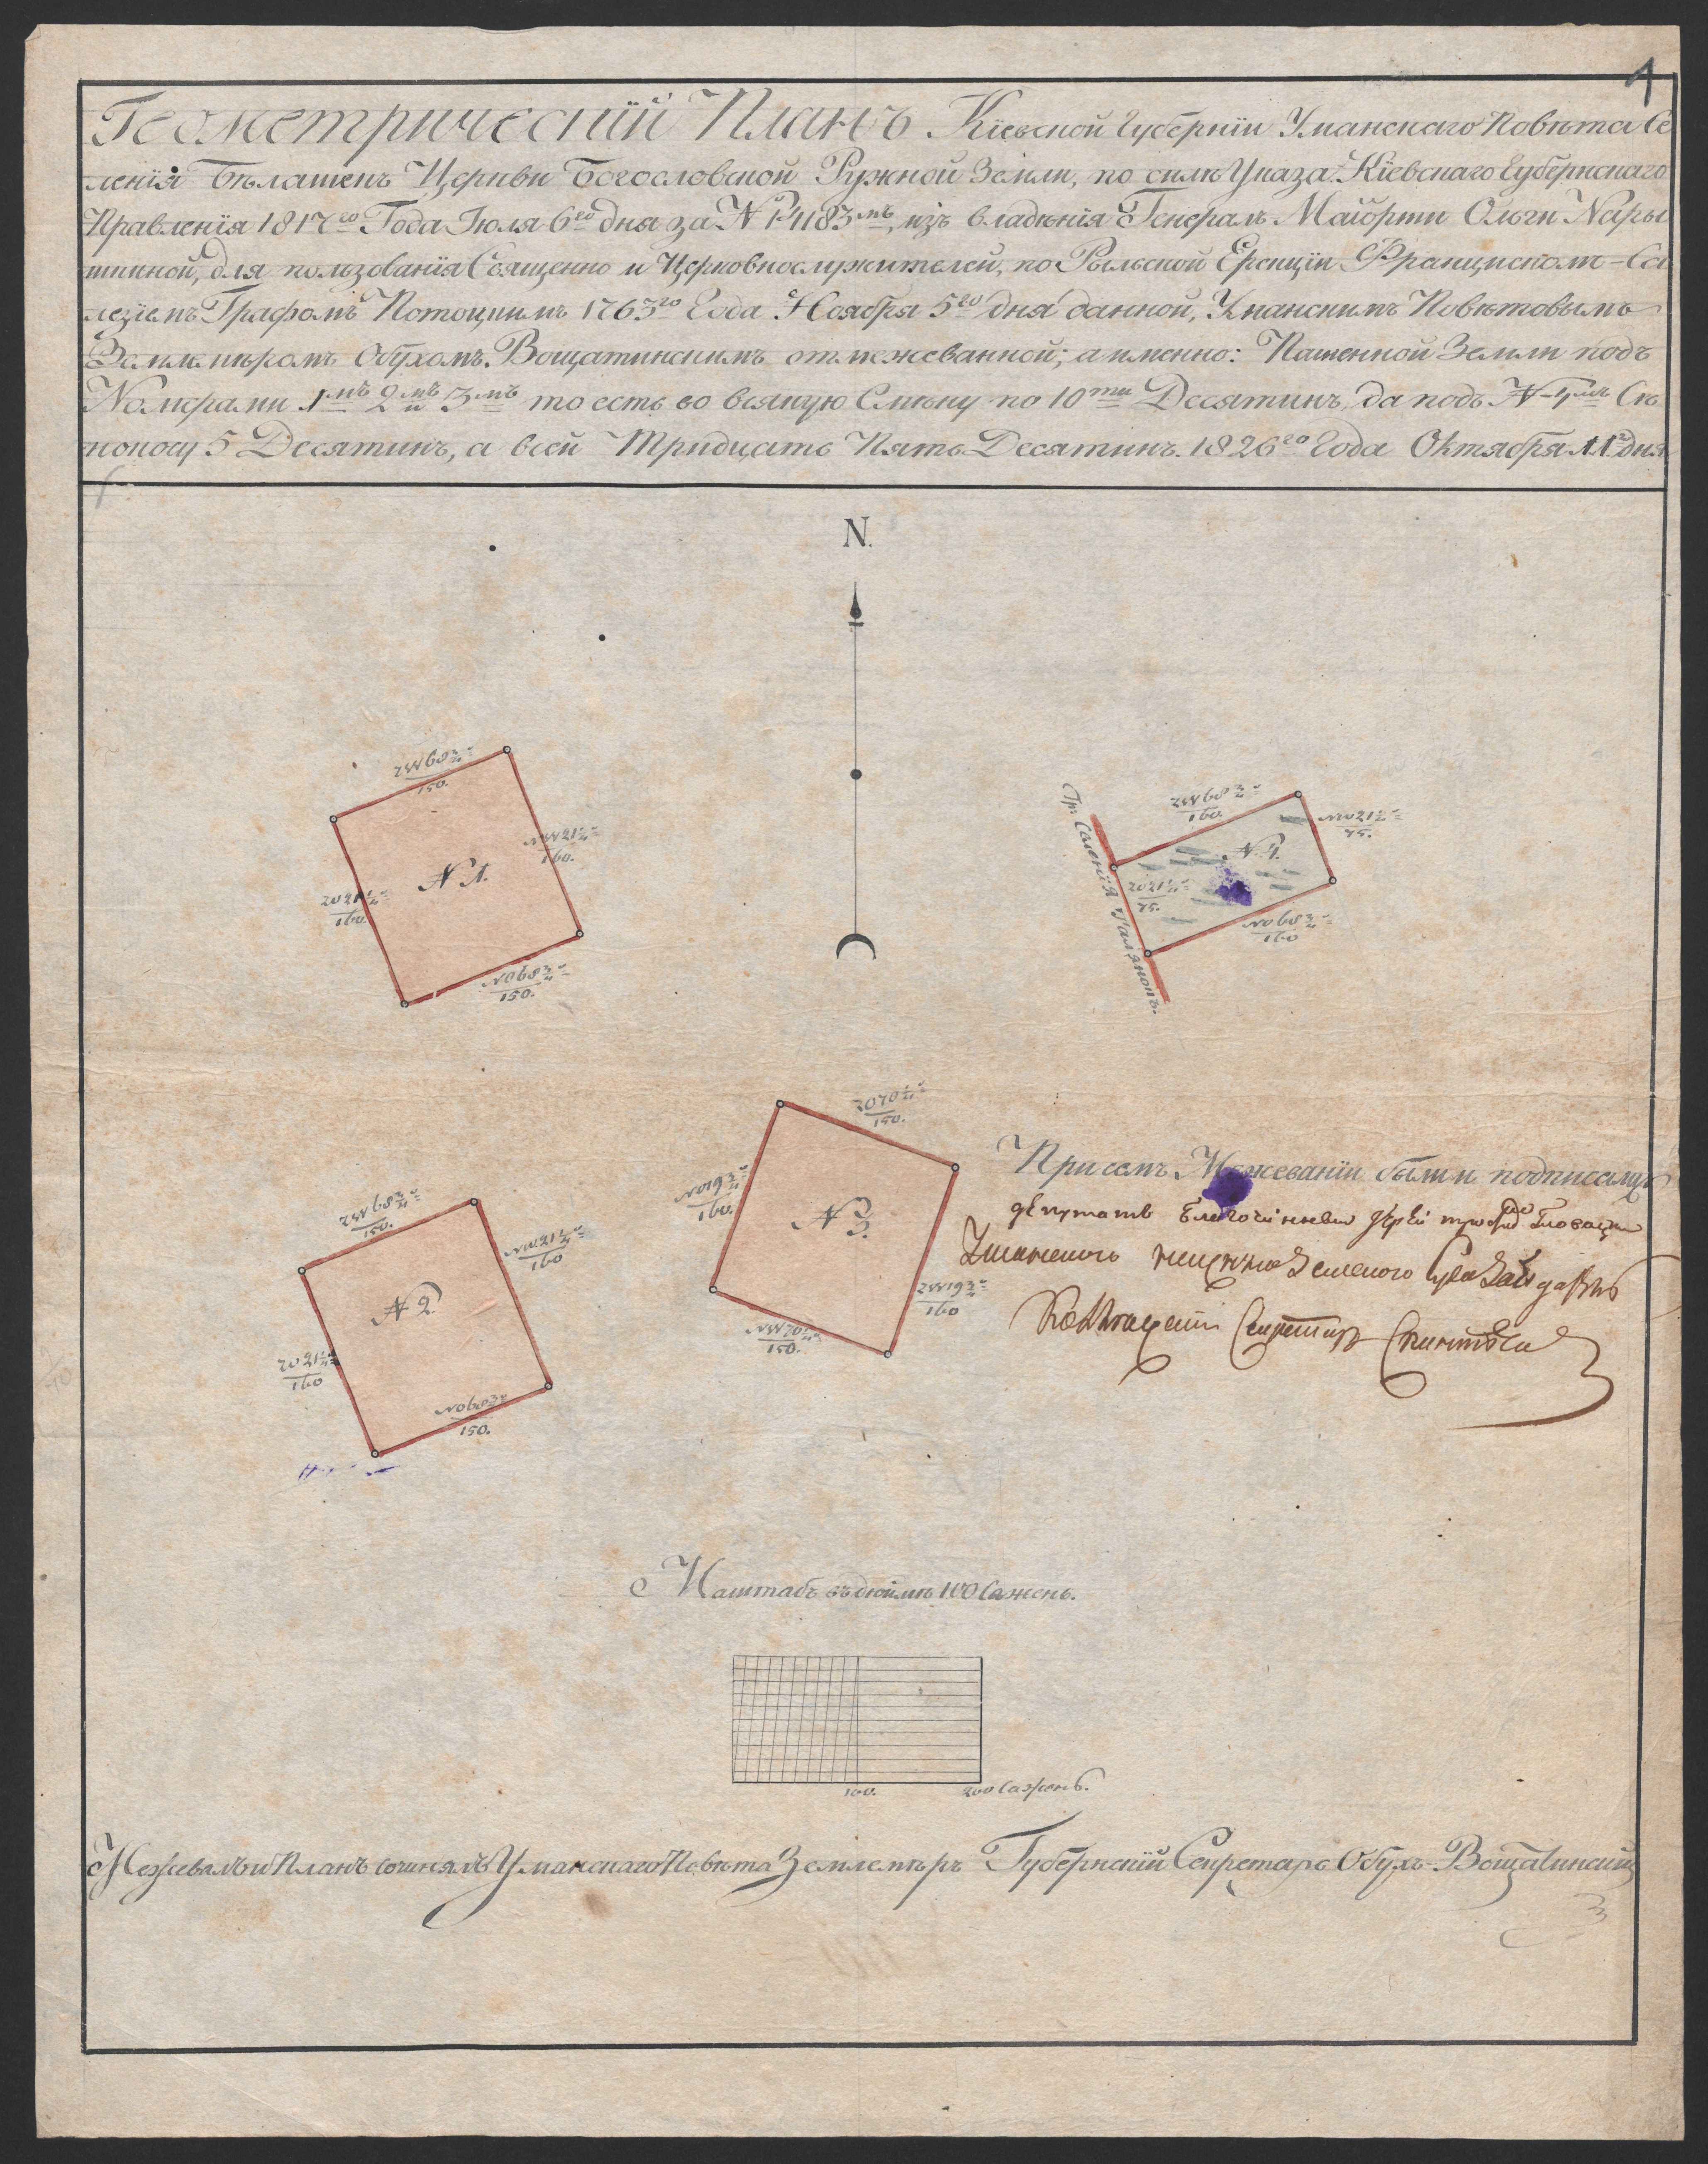 Геометрическій Планъ Кіевской Губерніи Уманскаго Повѣта Се
ленія Бѣлашекъ Церкви Богословской Ружной Земли, по силѣ Указа Кіевскаго Губернскаго
Правленія 1817го Года Іюля 6го дня за № 14183мъ, изъ владѣнія Генералъ Маіорши Ольги Нары
шкиной, для пользованія Священно и Церковнослужителей, по Рыльской Ерекціи Францискомъ-Са
лезіемъ Графомъ Потоцкимъ 1763го Года Ноября 5го дня данной, Уманскимъ Повѣтовымъ
Землемѣромъ Обухомъ-Вощатинскимъ отмежеванной; а именно: Пашенной Земли подъ
Номерами 1мъ 2мъ и 3мъ то есть во всякую Смѣну по 10ти Десятинъ, да подъ №4мъ Сѣ
нокосу 5 Десятинъ, а всей Тридцать Пять Десятинъ. 1826го Года Октября 11го дня
1
N.
ZW 68 3/4
150.
NW 21 1/4
160.
№ 1.
ZO 21 1/4
160.
NO 68 3/4
150.
Гр: Селенія
ZW 68 3/4
160.
NW 21 1/4
75.
№ 4.
ZO 21 1/4
75.
NO 68 3/4
160
ZO 70 1/4
150.
NO 19 3/4
160.
№ 3.
ZW 19 3/4
160
NW 70 1/4
150.
ZW 68 3/4
150.
NW 21 1/4
160
№ 2.
ZO 21 1/4
160
NO 68 3/4
150.
При семъ Межеваніи былъ и подписался
депутатъ Благочинный Іерей
Уманскаго нижняго Земскаго Суда
Секретарь
Маштабъ въ дюймѣ 100 Сажень.
100.
200 Сажень.
Межевалъ и Планъ сочинялъ Уманскаго Повѣта Землемѣръ Губернскій Секретарь Обухъ-Вощатинскій